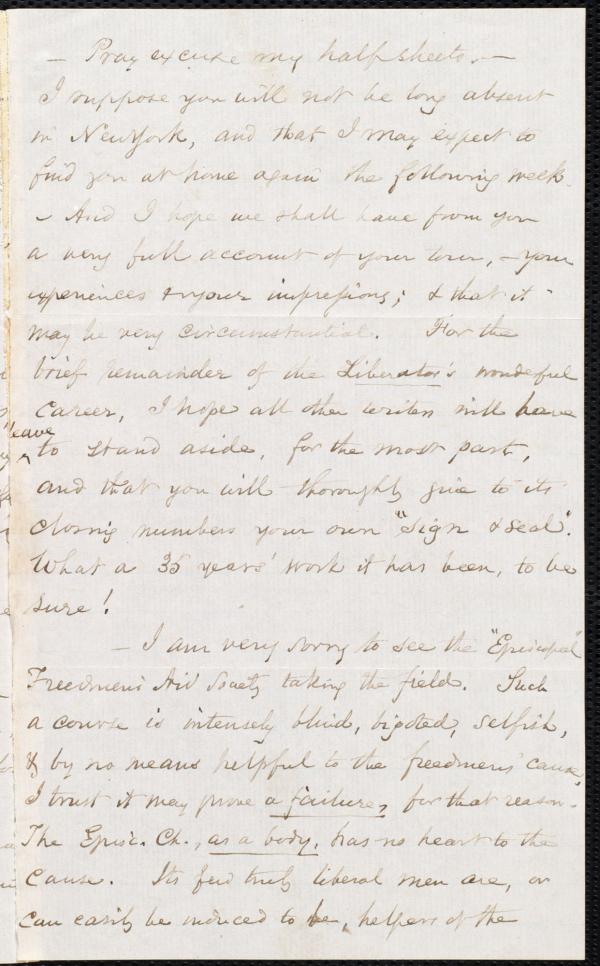 — Pray excuse my half sheets. —
I suppose you will not be long absent
in New York, and that I may expect to
find you at home again the following week.
— And I hope we shall have from you
a very full account of your tour, – your
experiences & your impressions; & that it
may be very circumstantial. For the
brief remainder of the Liberator's wonderful
career, I hope all other writers will have
leave
to stand aside, for the most part,
and that you will thoroughly give to its
closing numbers your own "Sign & seal".
What a 35 years' work it has been, to be
sure!
— I am very sorry to see the "Episcopal"
Freedmen's Aid Society taking the field. Such
a course is intensely blind, bigoted, selfish,
& by no means helpful to the freedmens' cause,
I trust it may prove a failure, for that reason.
The Episc. Ch., as a body, has no heart to the
cause. Its few truly liberal men are, or
can easily be induced to be, helpers of the